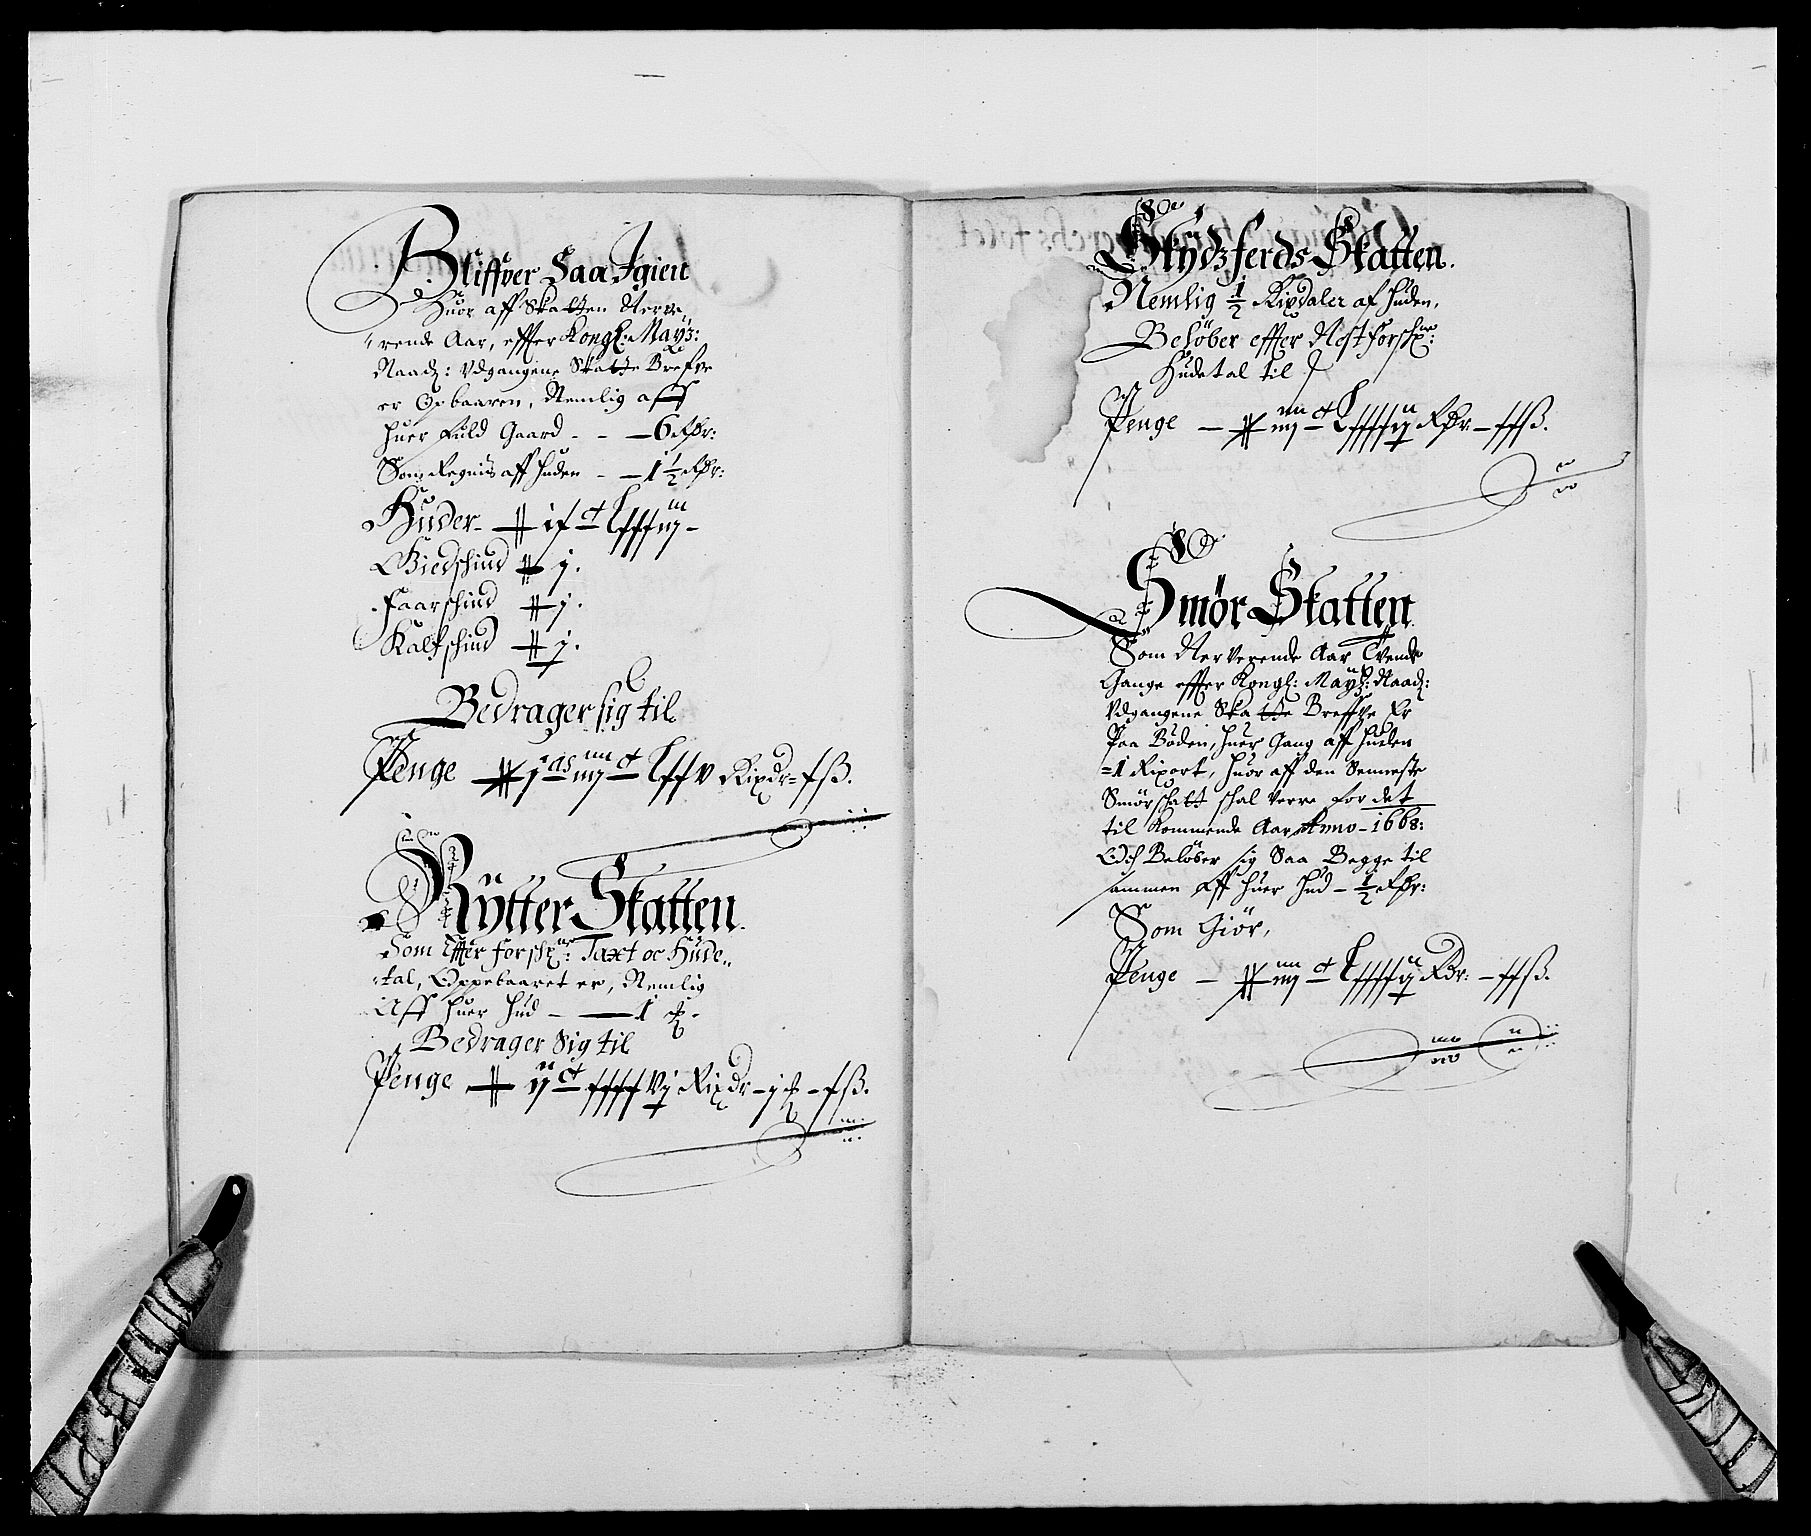 Bliffver Saa Igien
Huor aff Skatten Nerve
rende Aar, effter Kongl: Mayz:
Naadz: Vdgangene Skatte Brefve
er Opbaaren, Nemlig aff
huer Fuld Gaard - - - 6 Rdr:
Som Regnis aff huden - - 1 1/2 Rdr:
Huder -
Giedschind - j.
Faarschind - j.
Kalfschind - j.
Bedrager sig til
Penge - Rixdr - ß.
Rytter Skatten
Som Effter forschr: Taxt oc Hude-
tal, Oppebaaret er, Nemlig
Aff huer hud - 1
Bedrager Sig til
Penge - Rixdr - ß.
Skydzferds Skatten.
Nemlig 1/2 Rixdaler af huden,
Beløber effter Nestforschr:
Hudetal til
Penge - Rdr - ß.
Smør Skatten
Som Nerverende Aar Tvende
Gange effter Kongl: Mayz: Naadz:
Vdgangene Skatte Breffve Er
Paa Böden, huer Gang aff huden
- 1 Rixort, huor aff den Senneste
Smørschatt schal verre for det
til Kommende Aar Anno - 1668:
Och Beløber sig Saa Begge til
sammen aff huer hud - 1/2 Rdr:
Som Giør,
Penge - Rdr: - ß.